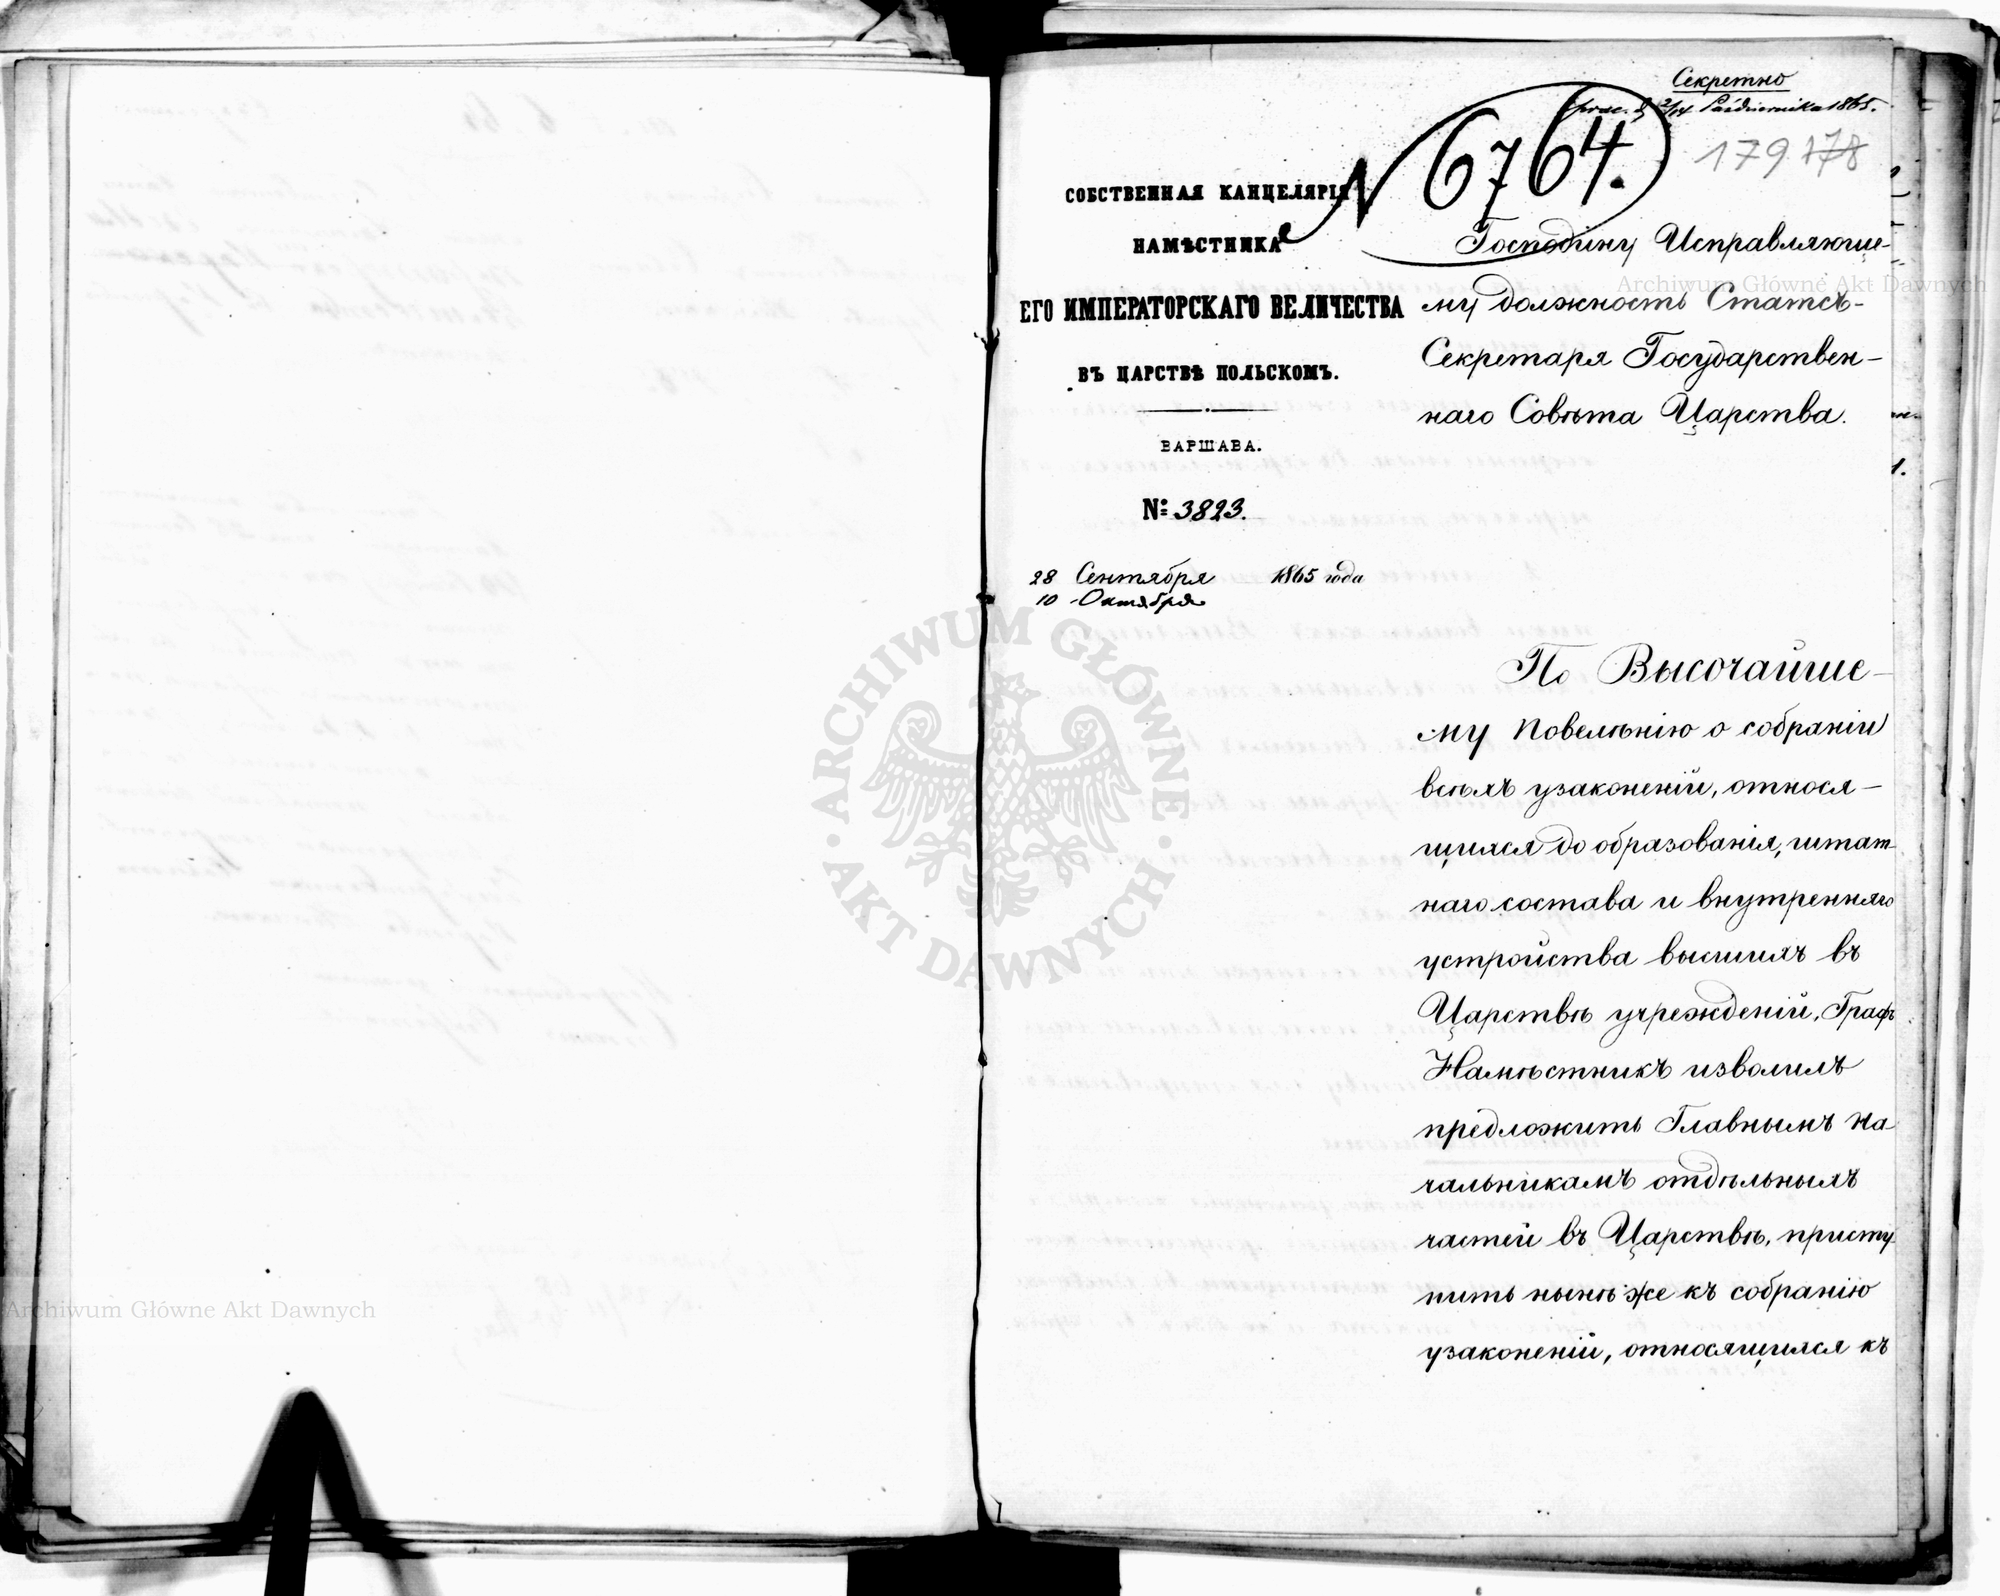 Секретно
prae. d. 2/14 Października 1865.
N 6764.
179 178
СОБСТВЕННАЯ КАНЦЕЛЯРІЯ
НАМѢСТНИКА
ЕГО ИМПЕРАТОРСКАГО ВЕЛИЧЕСТВА
ВЪ ЦАРСТВѢ ПОЛЬСКОМЪ.
ВАРШАВА.
№ 3823.
28 Сентября 1865 года
10 Октября
Господину Исправляюще-
му должность Статсъ-
Секретаря Государствен-
наго Совѣта Царства.
По Высочайше-
му Повелѣнію о собраніи
всѣхъ узаконеній, относя-
щихся до образованія, штат-
наго состава и внутренняго
устройства высшихъ въ
Царствѣ учрежденій, Графъ
Намѣстникъ изволилъ
предложить Главнымъ На
чальникамъ отдѣльныхъ
частей въ Царствѣ, присту-
пить нынѣ же къ собранію
узаконеній, относящихся къ
Archiwum Główne Akt Dawnych
Archiwum Główne Akt Dawnych
ARCHIWUM GŁÓWNE AKT DAWNYCH